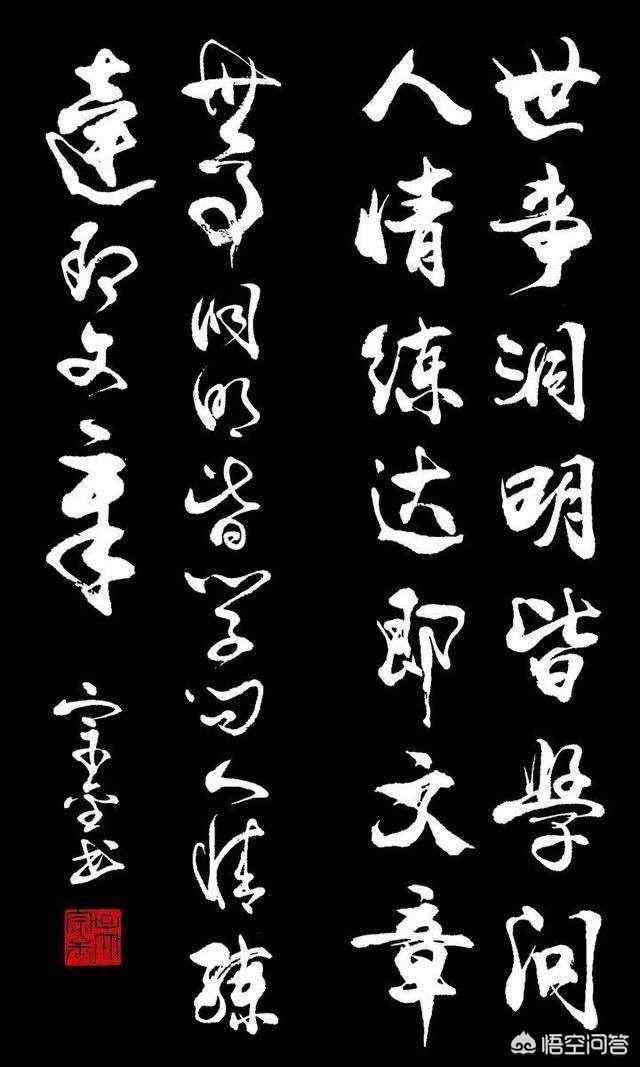 世事洞明皆學问
人情练达即文章
世事洞明皆学问人情练
達即文章
宗金书
悟空问答